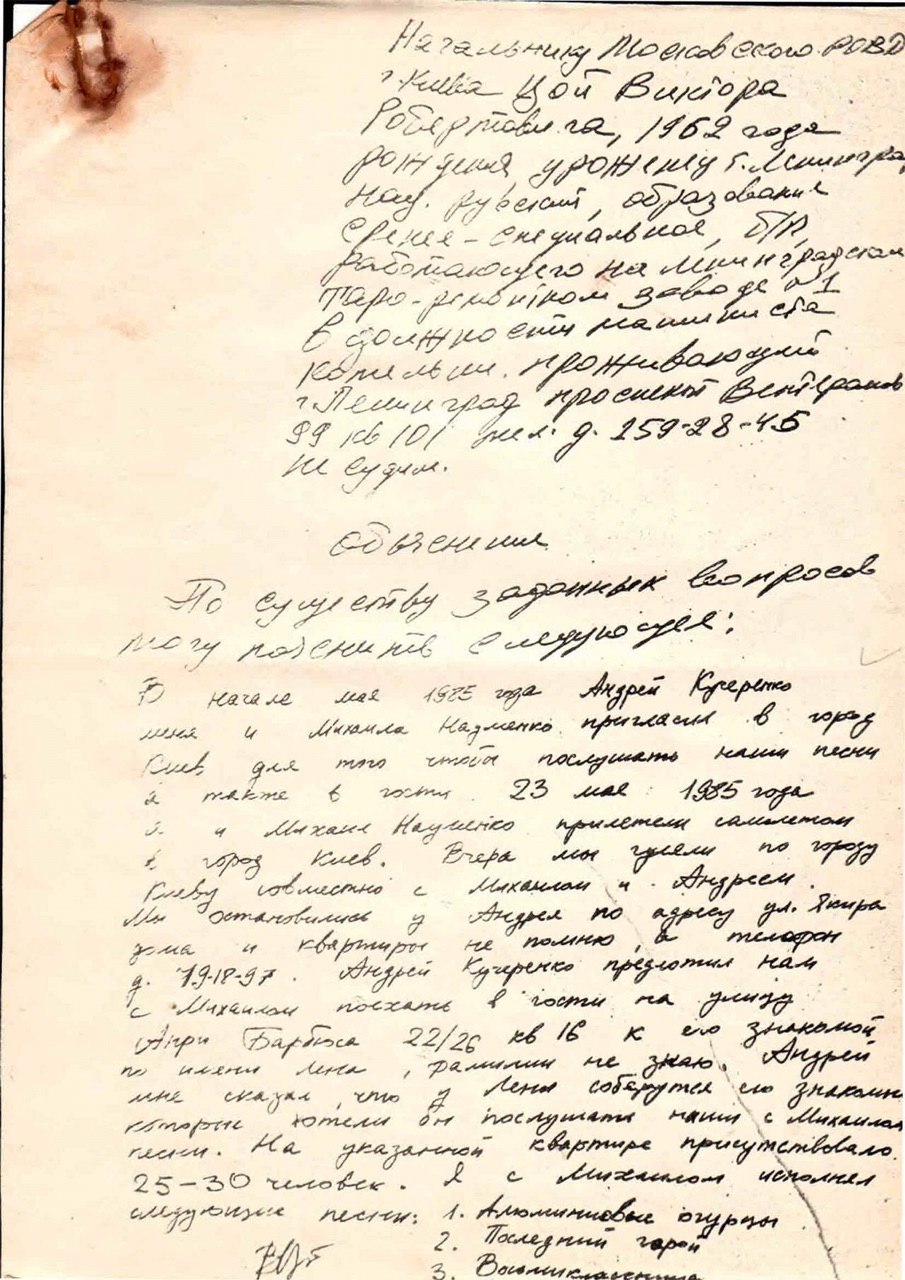 Начальнику Московского РОВД
г. Киева Цой Виктора
Робертовича, 1962 года
рождения уроженец г. Ленинград
нац. русский, образование
средне-специальное, б/п,
работающего на Ленинградском
таро-ремонтном заводе №1
в должности машиниста
котельни. проживающий
г. Ленинград проспект Ветеранов
99 кв 101 тел. д. 259-28-45
не судим.
Объяснение
По существу заданных вопросов
могу пояснить следующее:
В начале мая 1985 года Андрей Кучеренко
меня и Михаила Науменко пригласил в город
Киев для того чтобы послушать наши песни
а также в гости. 23 мая 1985 года
я и Михаил Науменко прилетели самолетом
в город Киев. Вчера мы гуляли по городу
Киеву совместно с Михаилом и Андреем.
Мы остановились у Андрея по адресу ул. Якира
дома и квартиры не помню, а телефон
д. 79-18-97. Андрей Кучеренко предложил нам
с Михаилом поехать в гости на улицу
Анри Барбюса 22/26 кв 16 к его знакомой
по имени Лена, фамилии не знаю. Андрей
мне сказал, что у Лены соберутся его знакомые
которые хотели бы послушать наши с Михаилом
песни. На указанной квартире присутствовало
25-30 человек. Я с Михаилом исполнял
следующие песни: 1. Алюминиевые огурцы
2. Последний герой
3. Восьмиклассница